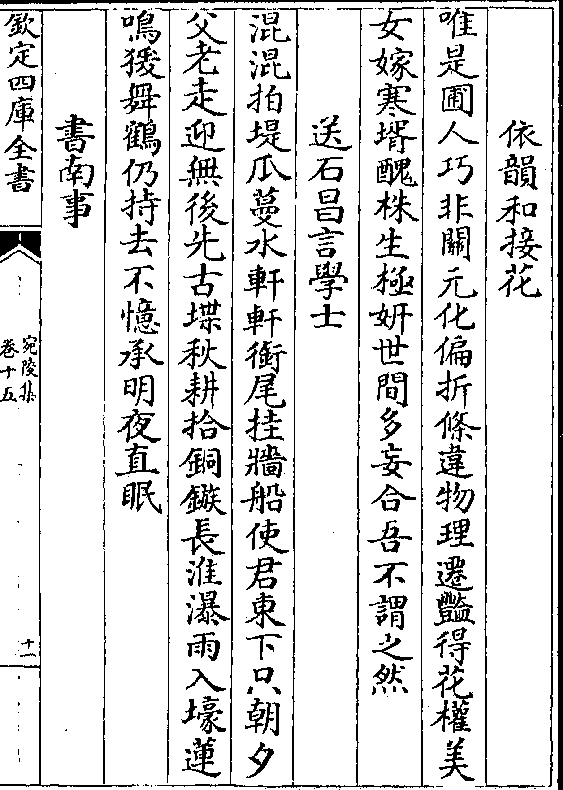 依韻和接花
唯是圃人巧非關元化偏折條違物理遷豔得花權美
女嫁寒壻醜株生極妍世間多妄合吾不謂之然
送石昌言學士
混混拍堤瓜蔓水軒軒銜尾挂牆船使君東下只朝夕
父老走迎無後先古堞秋耕拾銅鏃長淮瀑雨入壕蓮
鳴猨舞鶴仍持去不憶承明夜直眠
書南事
欽定四庫全書
宛陵集
卷十五
十一